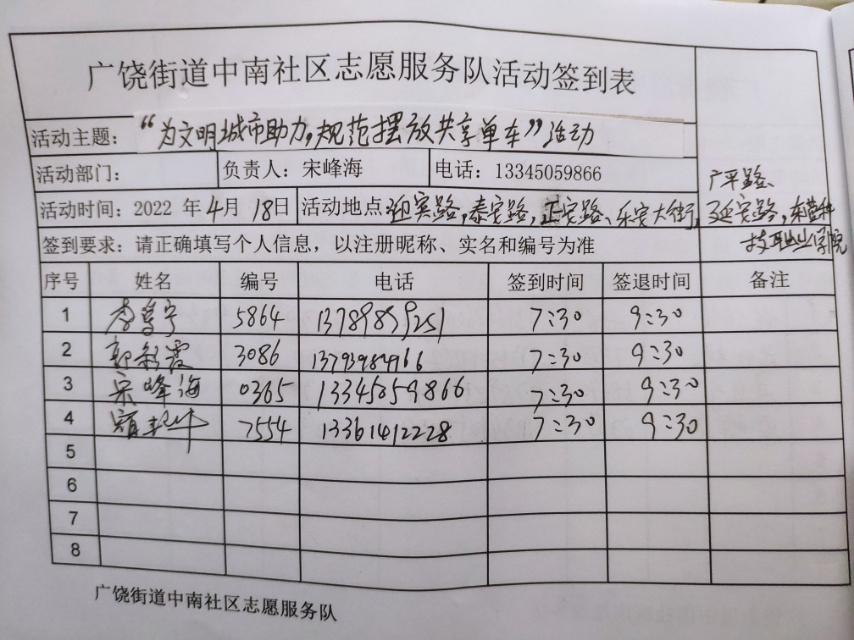 广饶街道中南社区志愿服务队活动签到表
活动主题：“为文明城市助力，规范摆放共享单车”活动
活动部门： 负责人：宋峰海 电话：13345059866
活动时间：2022 年 4月 18日 活动地点 迎宾路，泰安路，正安路、乐安大街，
广平路、
延安路，东营科
技职业学院
签到要求：请正确填写个人信息，以注册昵称、实名和编号为准
序号 姓名 编号 电话 签到时间 签退时间 备注
1 5864 13789859251 7:30 9:30
2 郭彩霞 3086 7:30 9:30
3 宋峰海 0365 13345059866 7:30 9:30
4 7554 13361412228 7:30 9:30
5
6
7
8
广饶街道中南社区志愿服务队